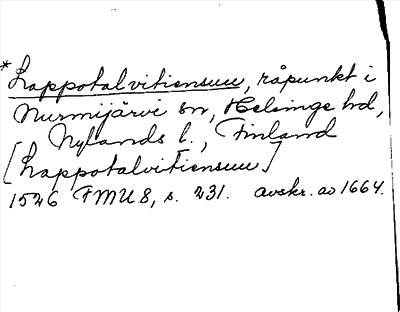 *Lappotalvitiensuu, råpunkt i
Nurmijärvi sn, Helsinge hd,
Nylands l., Finland
[Lappotalvitiensuu]
1526 FMU 8, s. 231. avskr. av 1664.